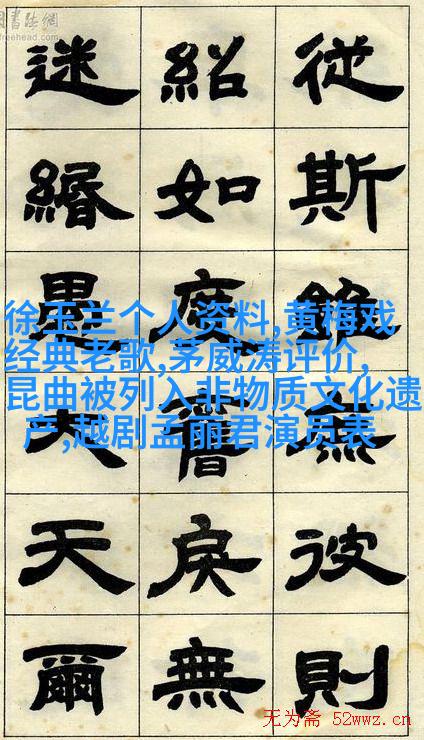 書法網
freehead.com
從斯無彼則
紹如戾無
迷緡墨天爾
徐玉兰个人资料,黄梅戏
经典老歌,茅威涛评价,
昆曲被列入非物质文化遗
产,越剧孟丽君演员表
无为斋 52wwz.cn